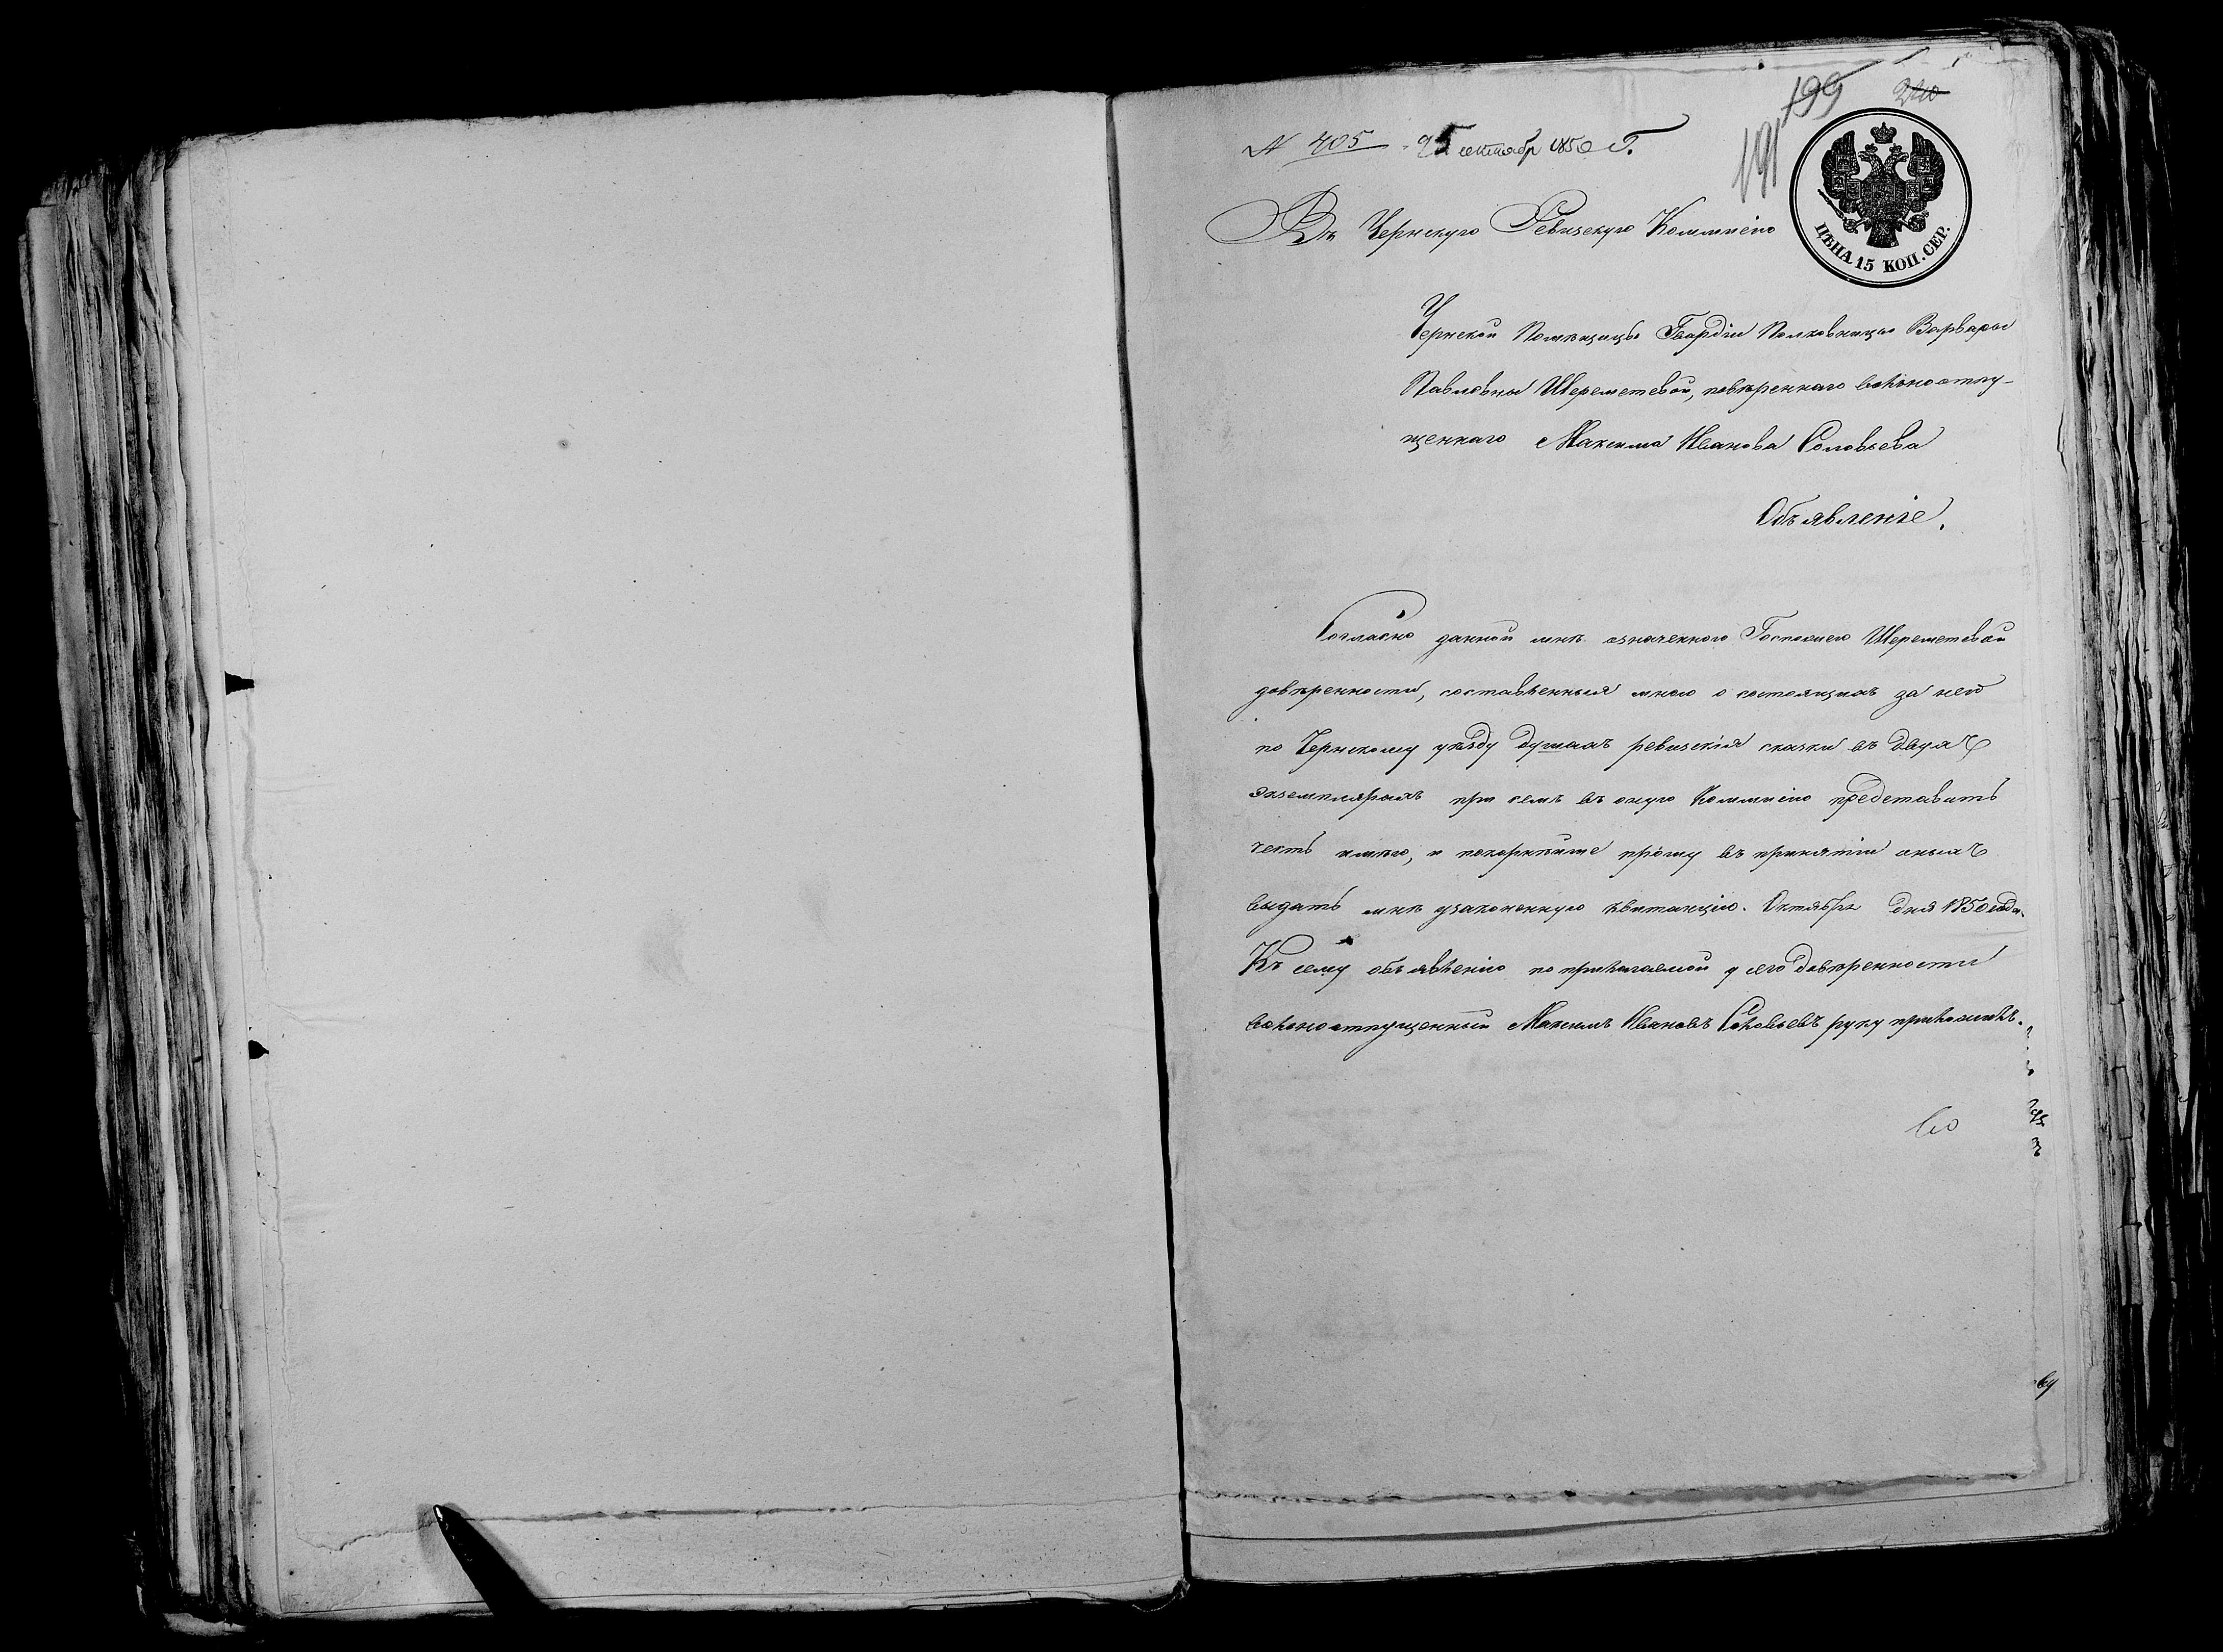 199
210
191
N 405 25 октабр 1850 Г.
ЦѢНА 15 КОП. СЕР.
Въ Чернскую Ревизскую Коммисію
Чернской Помѣщицы Гвардіи Полковницы Варвары
Павловны Шереметевой, повѣреннаго вольноотпу-
щеннаго Максима Иванова Соловьева
Объявленіе.
Согласно данной мнѣ означенною Госпожею Шереметевой
довѣренности, составленныя мною о состоящихъ за нею
по Чернскому уѣзду душахъ ревизскія сказки въ двухъ
экземплярахъ при семъ въ оную Коммисію представить
честь имѣю, и покорнѣйше прошу въ принятіи оныхъ
выдать мнѣ узаконенную квитанцію. Октября дня 1850 года.
Къ сему объявленію по прилагаемой у сего довѣренности
вольноотпущенный Максимъ Ивановъ Соловьевъ руку приложилъ.